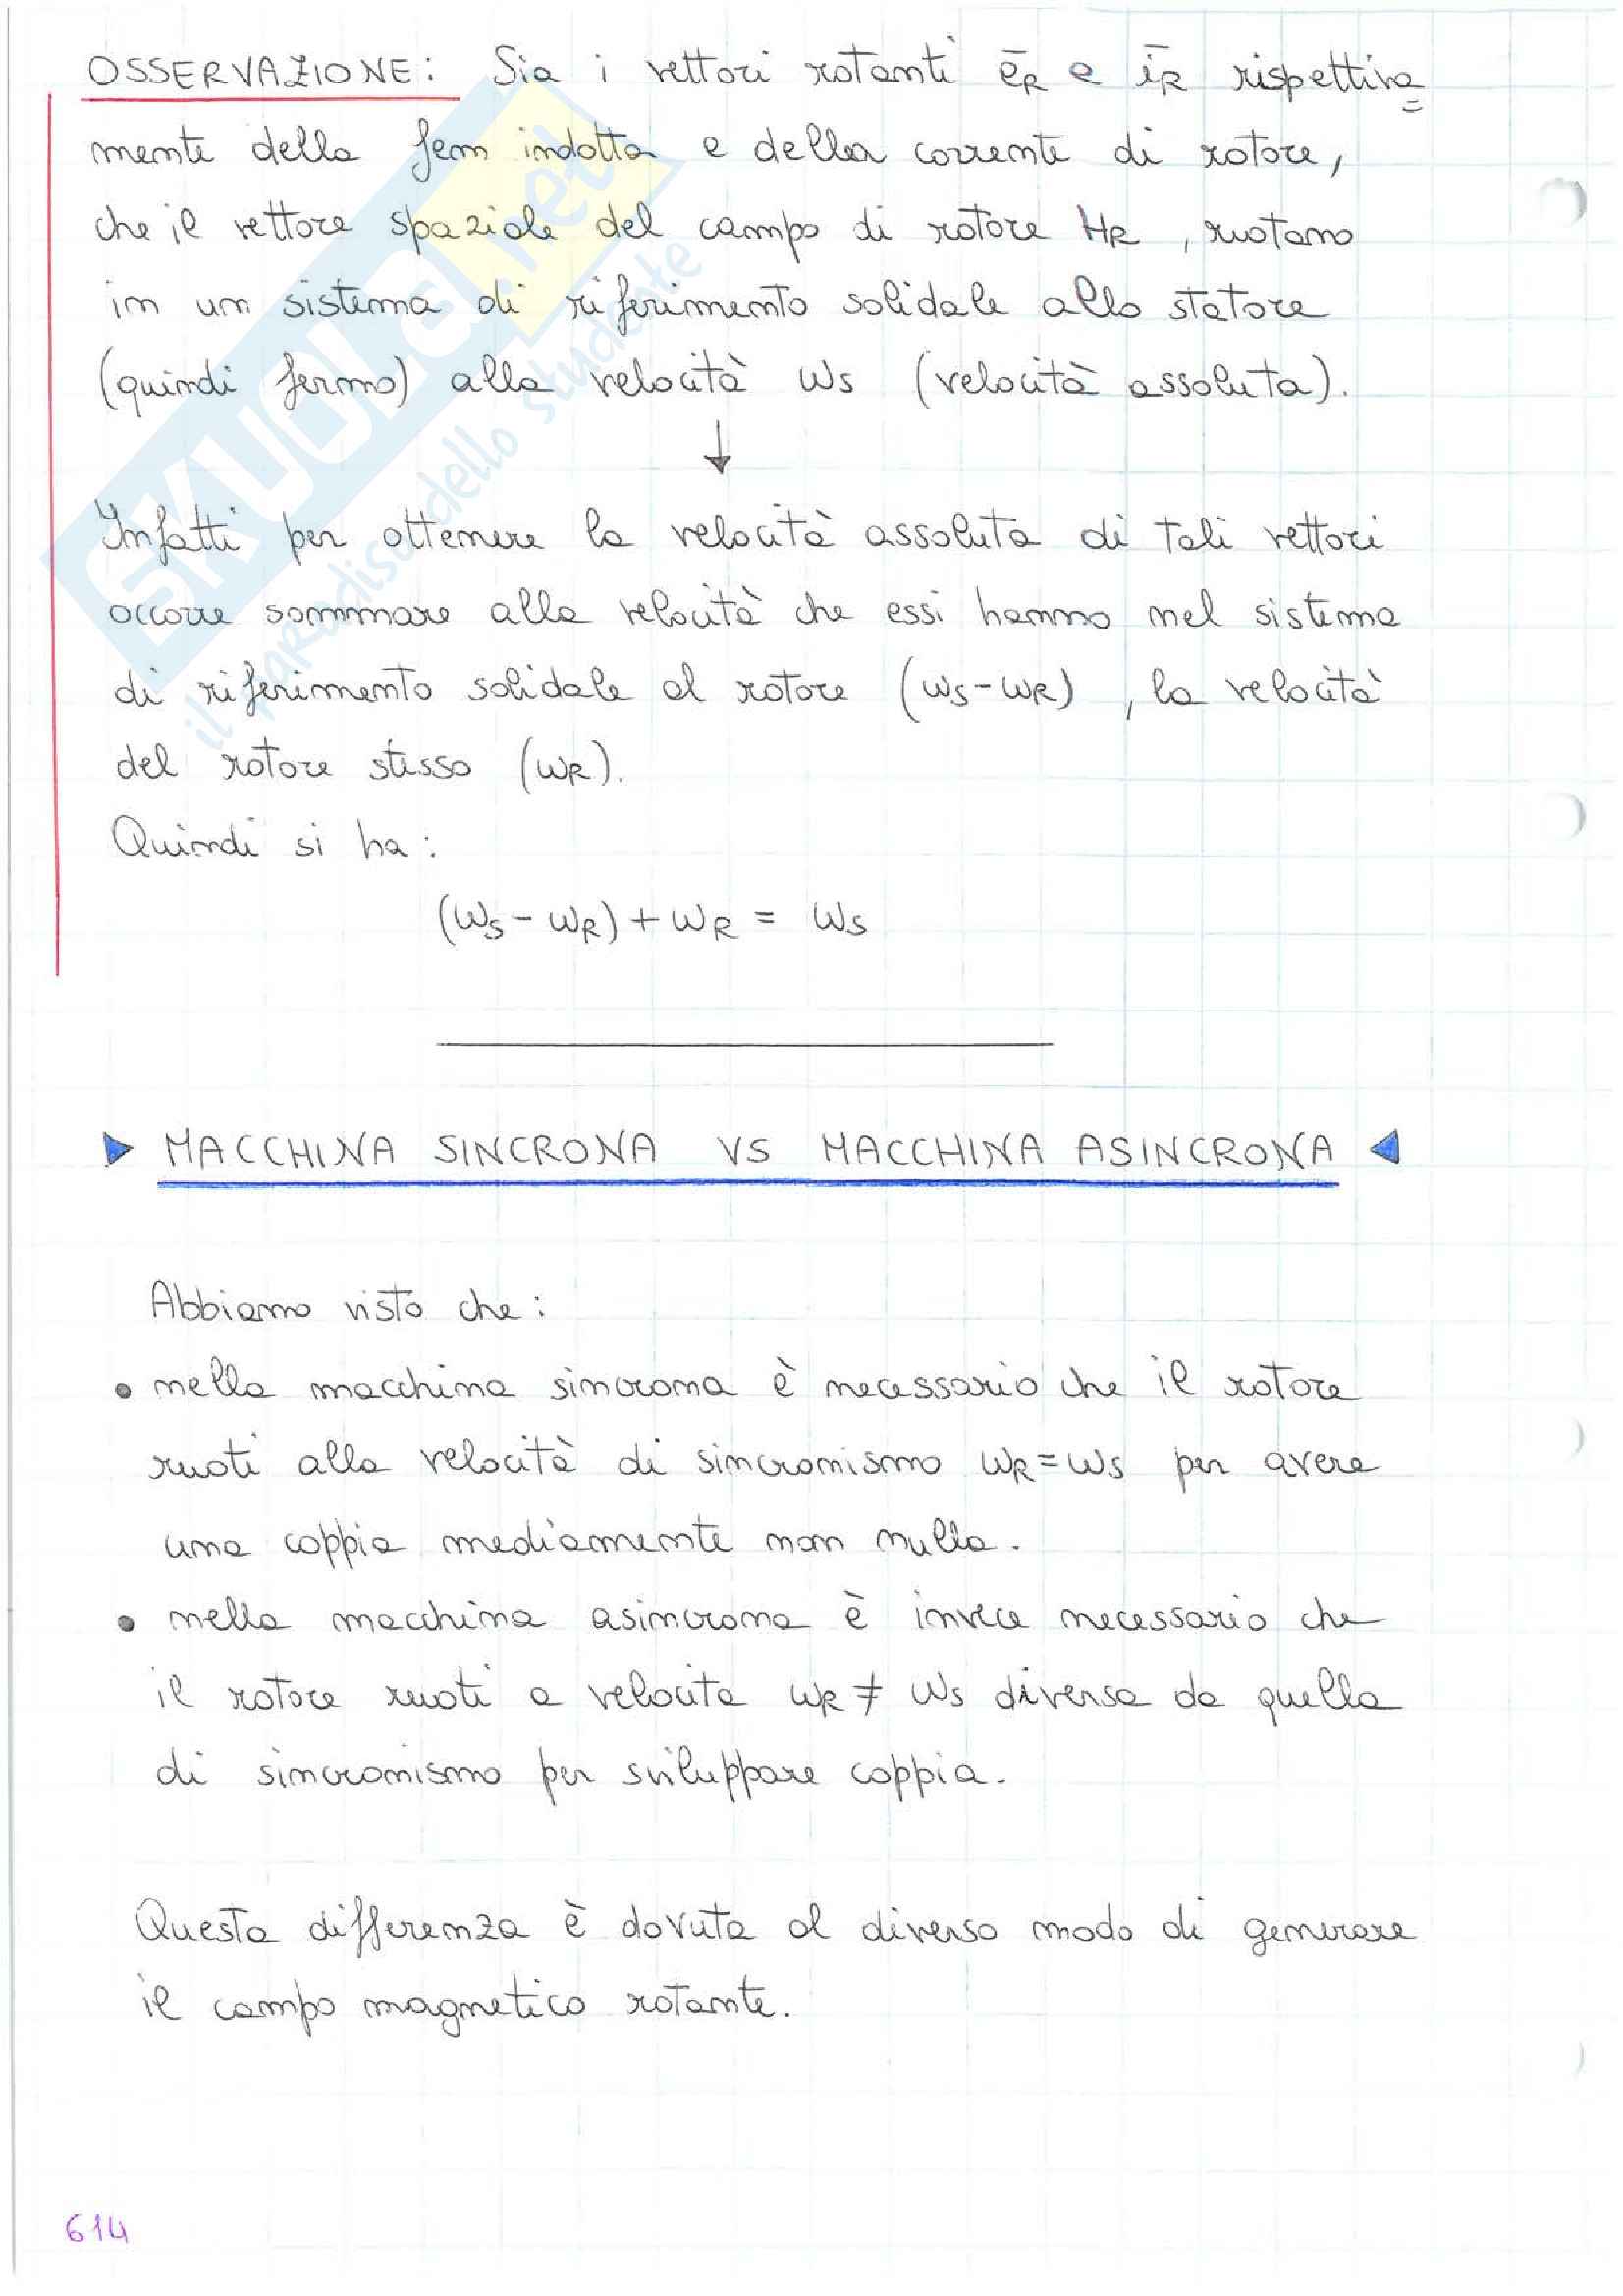 OSSERVAZIONE: Sia i vettori rotanti ēR e īR rispettiva=
mente della fem indotta e della corrente di rotore,
che il vettore spaziale del campo di rotore HR, ruotano
in un sistema di riferimento solidale allo statore
(quindi fermo) alla velocità ωs (velocità assoluta).
↓
Infatti per ottenere la velocità assoluta di tali vettori
occorre sommare alla velocità che essi hanno nel sistema
di riferimento solidale al rotore (ωs-ωR), la velocità
del rotore stesso (ωR).
Quindi si ha:
(ωs-ωR)+ωR = ωs
MACCHINA SINCRONA VS MACCHINA ASINCRONA
Abbiamo visto che:
• nella macchina sincrona è necessario che il rotore
ruoti alla velocità di sincronismo ωR=ωs per avere
una coppia mediamente non nulla.
• nella macchina asincrona è invece necessario che
il rotore ruoti a velocita ωR≠ ωs diversa da quella
di sincronismo per sviluppare coppia.
Questa differenza è dovuta al diverso modo di generare
il campo magnetico rotante.
614
SKUOLA.net
il paradiso dello studente